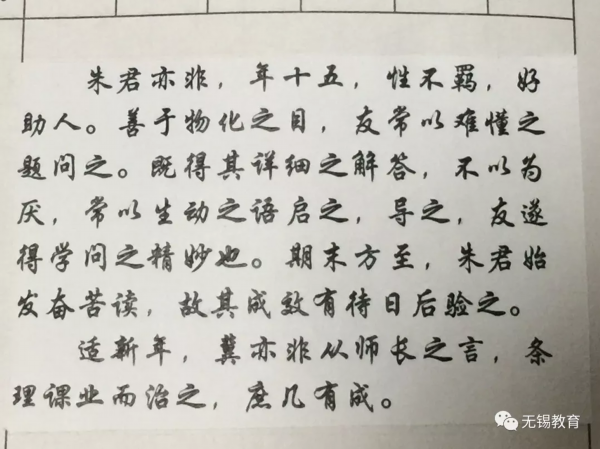 朱君亦非，年十五，性不羁，好
助人。善于物化之目，友常以难懂之
题问之。既得其详细之解答，不以为
厌，常以生动之语启之，导之，友遂
得学问之精妙也。期末方至，朱君始
发奋苦读，故其成效有待日后验之。
适新年，冀亦非从师长之言，条
理课业而治之，庶几有成。
无锡教育